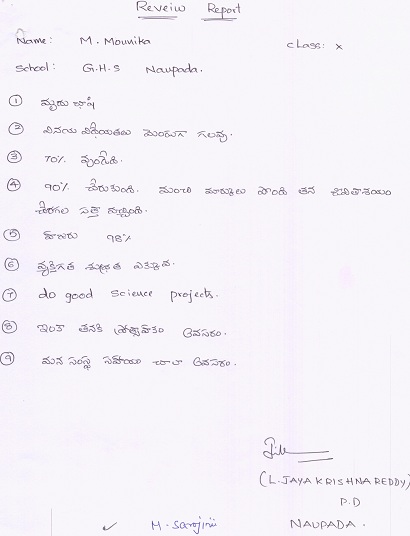 Reveiw Report
Name: M. Mounika class: x
School: G.H.S Naupada.
① మృదు భాషి
② వినయ విధేయతలు మెండుగా గలవు.
③ 70% వుండేది.
④ 90% చేరుకుంది. మంచి మార్కులు పొంది తన జీవితాశయం
చేరగల సత్తా వచ్చింది.
⑤ హాజరు 98%
⑥ వ్యక్తిగత శుభ్రత ఎక్కువ.
⑦ do good Science projects.
⑧ ఇంకా తనకి ప్రోత్సాహకం అవసరం.
⑨ మన సంస్థ సహాయం చాలా అవసరం.
(L. JAYA KRISHNA REDDY)
P.D
M. Sarojini NAUPADA.